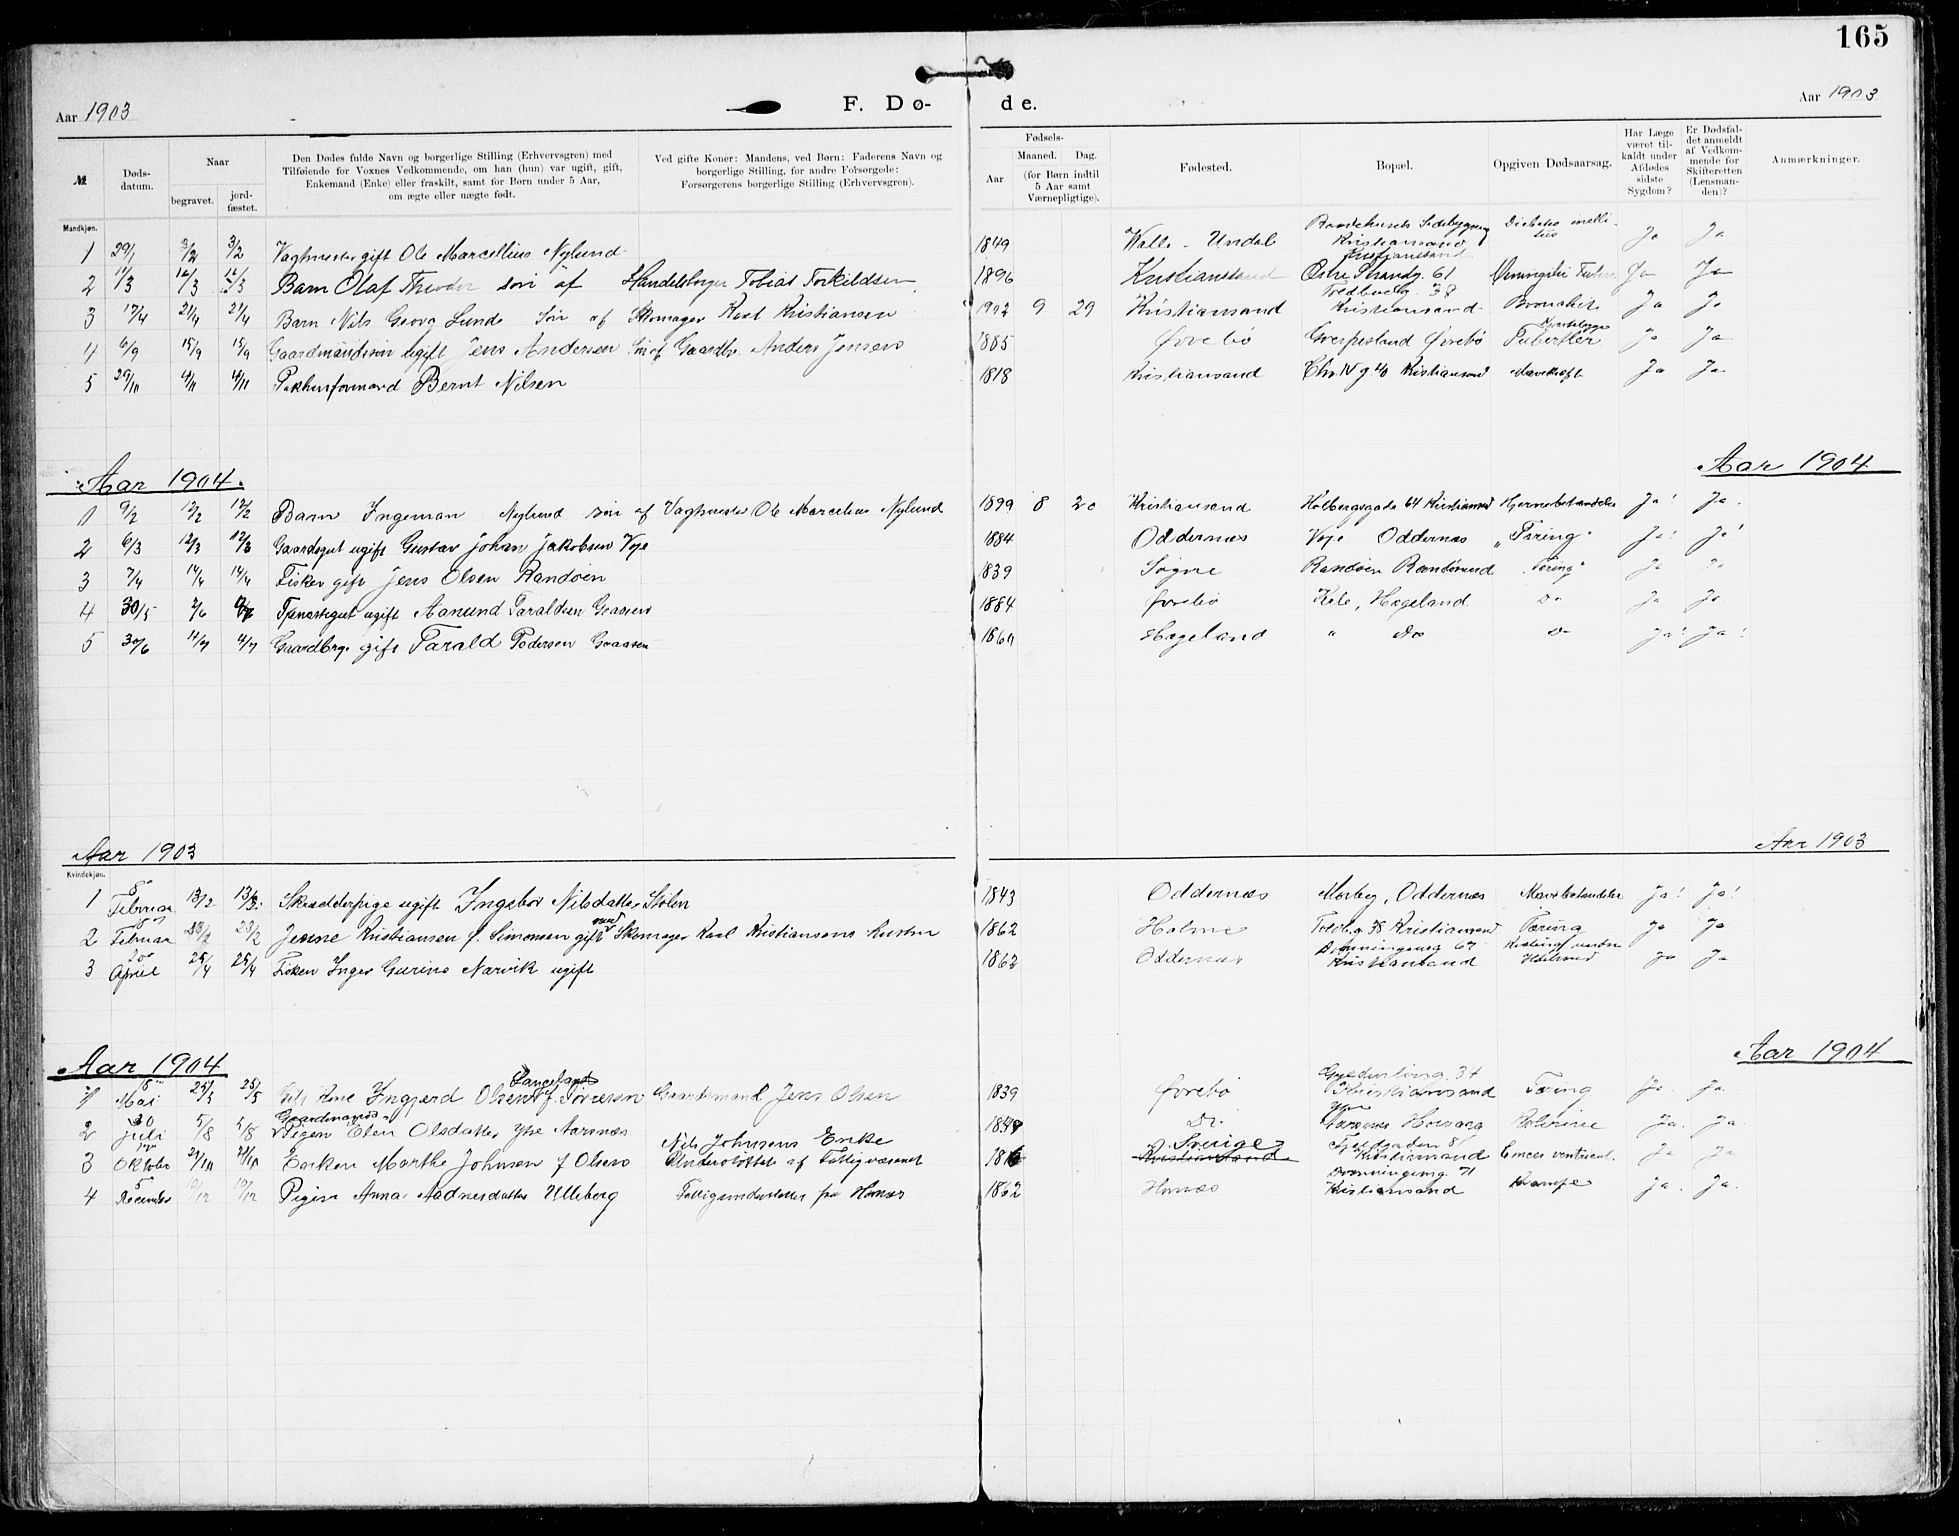 165
Aar 1903
F. Dø-
de.
Aar 1903
№
Døds-
datum.
Naar
begravet.
jord-
fæstet.
Den Dødes fulde Navn og borgerlige Stilling (Erhvervsgren) med
Tilføiende for Voxnes Vedkommende, om han (hun) var ugift, gift,
Enkemand (Enke) eller fraskilt, samt for Børn under 5 Aar,
om ægte eller uægte født.
Ved gifte Koner: Mandens, ved Børn: Faderens Navn og
borgerlige Stilling, for andre Forsørgede:
Forsørgerens borgerlige Stilling (Erhvervsgren).
Fødsels-
Aar
Maaned.
Dag.
(for Børn indtil
5 Aar samt
Værnepligtige).
Fødested.
Bopæl.
Opgiven Dødsaarsag.
Har Læge
været til-
kaldt under
Afdødes
sidste
Sygdom?
Er Dødsfal-
det anmeldt
af Vedkom-
mende for
Skifteretten
(Lensman-
den)?
Anmærkninger.
Mandkjøn.
1 29/1 3/2 3/2 Vagtmester gift Ole Marcellius Nylund 1849 Valle - Undal Kristiansand Ja Ja
2 11/3 16/3 16/3 Barn Olaf Theodor søn af Handelsborger Tobias Torkildsen 1896 Kristiansand Østre Strandg. 61 Kristiansand Ja Ja
3 17/4 21/4 21/4 Barn Nils Georg Lunde Søn af Skomager Karl Kristiansen 1902 9 29 Kristiansand Toldbodg. 38 Kristiansand Ja Ja
4 6/9 15/9 15/9 Gaardmandssøn ugift Jens Andersen Søn af Gaardbr. Anders Jensen 1885 Øvrebø Øvrebø Ja Ja
5 29/10 4/11 4/11 Pakhusformand Bernt Nilsen 1818 Kristiansand Chr. IV g. 40 Kristiansand Mavekræft Ja Ja
Aar 1904.
Aar 1904
1 9/2 12/2 12/2 Barn Ingeman Nylund søn af Vagtmester Ole Marcelius Nylund 1899 8 20 Kristiansand Holbergsgade 64 Kristiansand Hjernebetændelse Ja! Ja.
2 6/3 12/3 12/3 Gaardsgut ugift Gustav Johan Jakobsen Voje 1884 Oddernæs Voje Oddernæs „Tæring" Ja! Ja!
3 7/4 14/4 14/4 Fisker gift Jens Olsen Randøen 1839 Søgne Randøen Randøsund Tæring" Ja Ja
4 30/5 Tjenestegut ugift Aanund Taraldsen Graasen 1884 Øvrebø Hægeland Do Ja Ja
5 30/6 4/7 4/7 Gaardbrg. gift Tarald Pedersen Graasen Hægeland " Do Do Ja! Ja!
Aar 1903
Aar 1903
Kvindekjøn.
1 8 Februar 13/2 13/2 Skrædderpige ugift Ingebor Nilsdatter Stølen 1843 Oddernæs Mosby, Oddernæs Mavebetændelse Ja! Ja!
2 Februar 23/2 23/2 Jenne Kristiansen f. Simonsen gift med Skomager Karl Kristiansens hustru 1862 Holme Toldb.g. 38 Kristiansand Tæring Ja Ja
3 20 April 25/4 25/4 Frøken Inger Gurine Narvik ugift 1862 Oddernæs Dronningensg 67 Kristiansand Ja Ja
Aar 1904
Aar 1904
1 18 Mai 25/5 25/5 Gift Kone Ingjerd Olsen Langeland Gaardmand Jens Olsen 1839 Øvrebø Gyldenløvg. 34 Kristiansand Tæring Ja. Ja.
2 30 Juli 5/8 5/8 Gaardmands- Pigen Elen Olsdatter Ytre Aarsnæs Do. Ja. Ja.
3 Oktober Enken Marthe Johnsen f Olsen Nils Johnsens Enke Understøttet af Fattigvæsenet Sverige Kristiansand Kristiansand Ja Ja
4 5 December 10/12 10/12 Pigen Anna Aadnesdatter Ulleberg Fattigunderstøttet fra 1862 Dronningensg. 71 Kristiansand Krampe Ja. Ja.